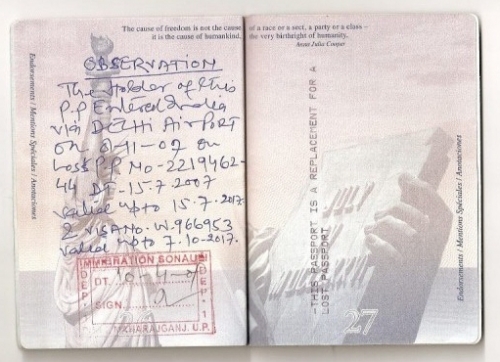 The cause of freedom is not the cause of a race or a sect, a party or a class –
it is the cause of humankind, the very birthright of humanity.
Anna Julia Cooper
Endorsements / Mentions Spéciales / Anotaciones
OBSERVATION
The Holder of this
P.P Entered India
VIA DELHI AIRPORT
on
Loss P.P No-2219462-
44 DT-15-7-2007
valid upto 15.7.2017.
VISA NO. W.966953
valid upto 7.10-2017.
IMMIGRATION SONAULI
DEP.
DT.
SIGN.
MAHARAJGANJ. U.P.
DEP.
--THIS PASSPORT IS A REPLACEMENT FOR A
LOST PASSPORT
JULY
27
Endorsements / Mentions Spéciales / Anotaciones